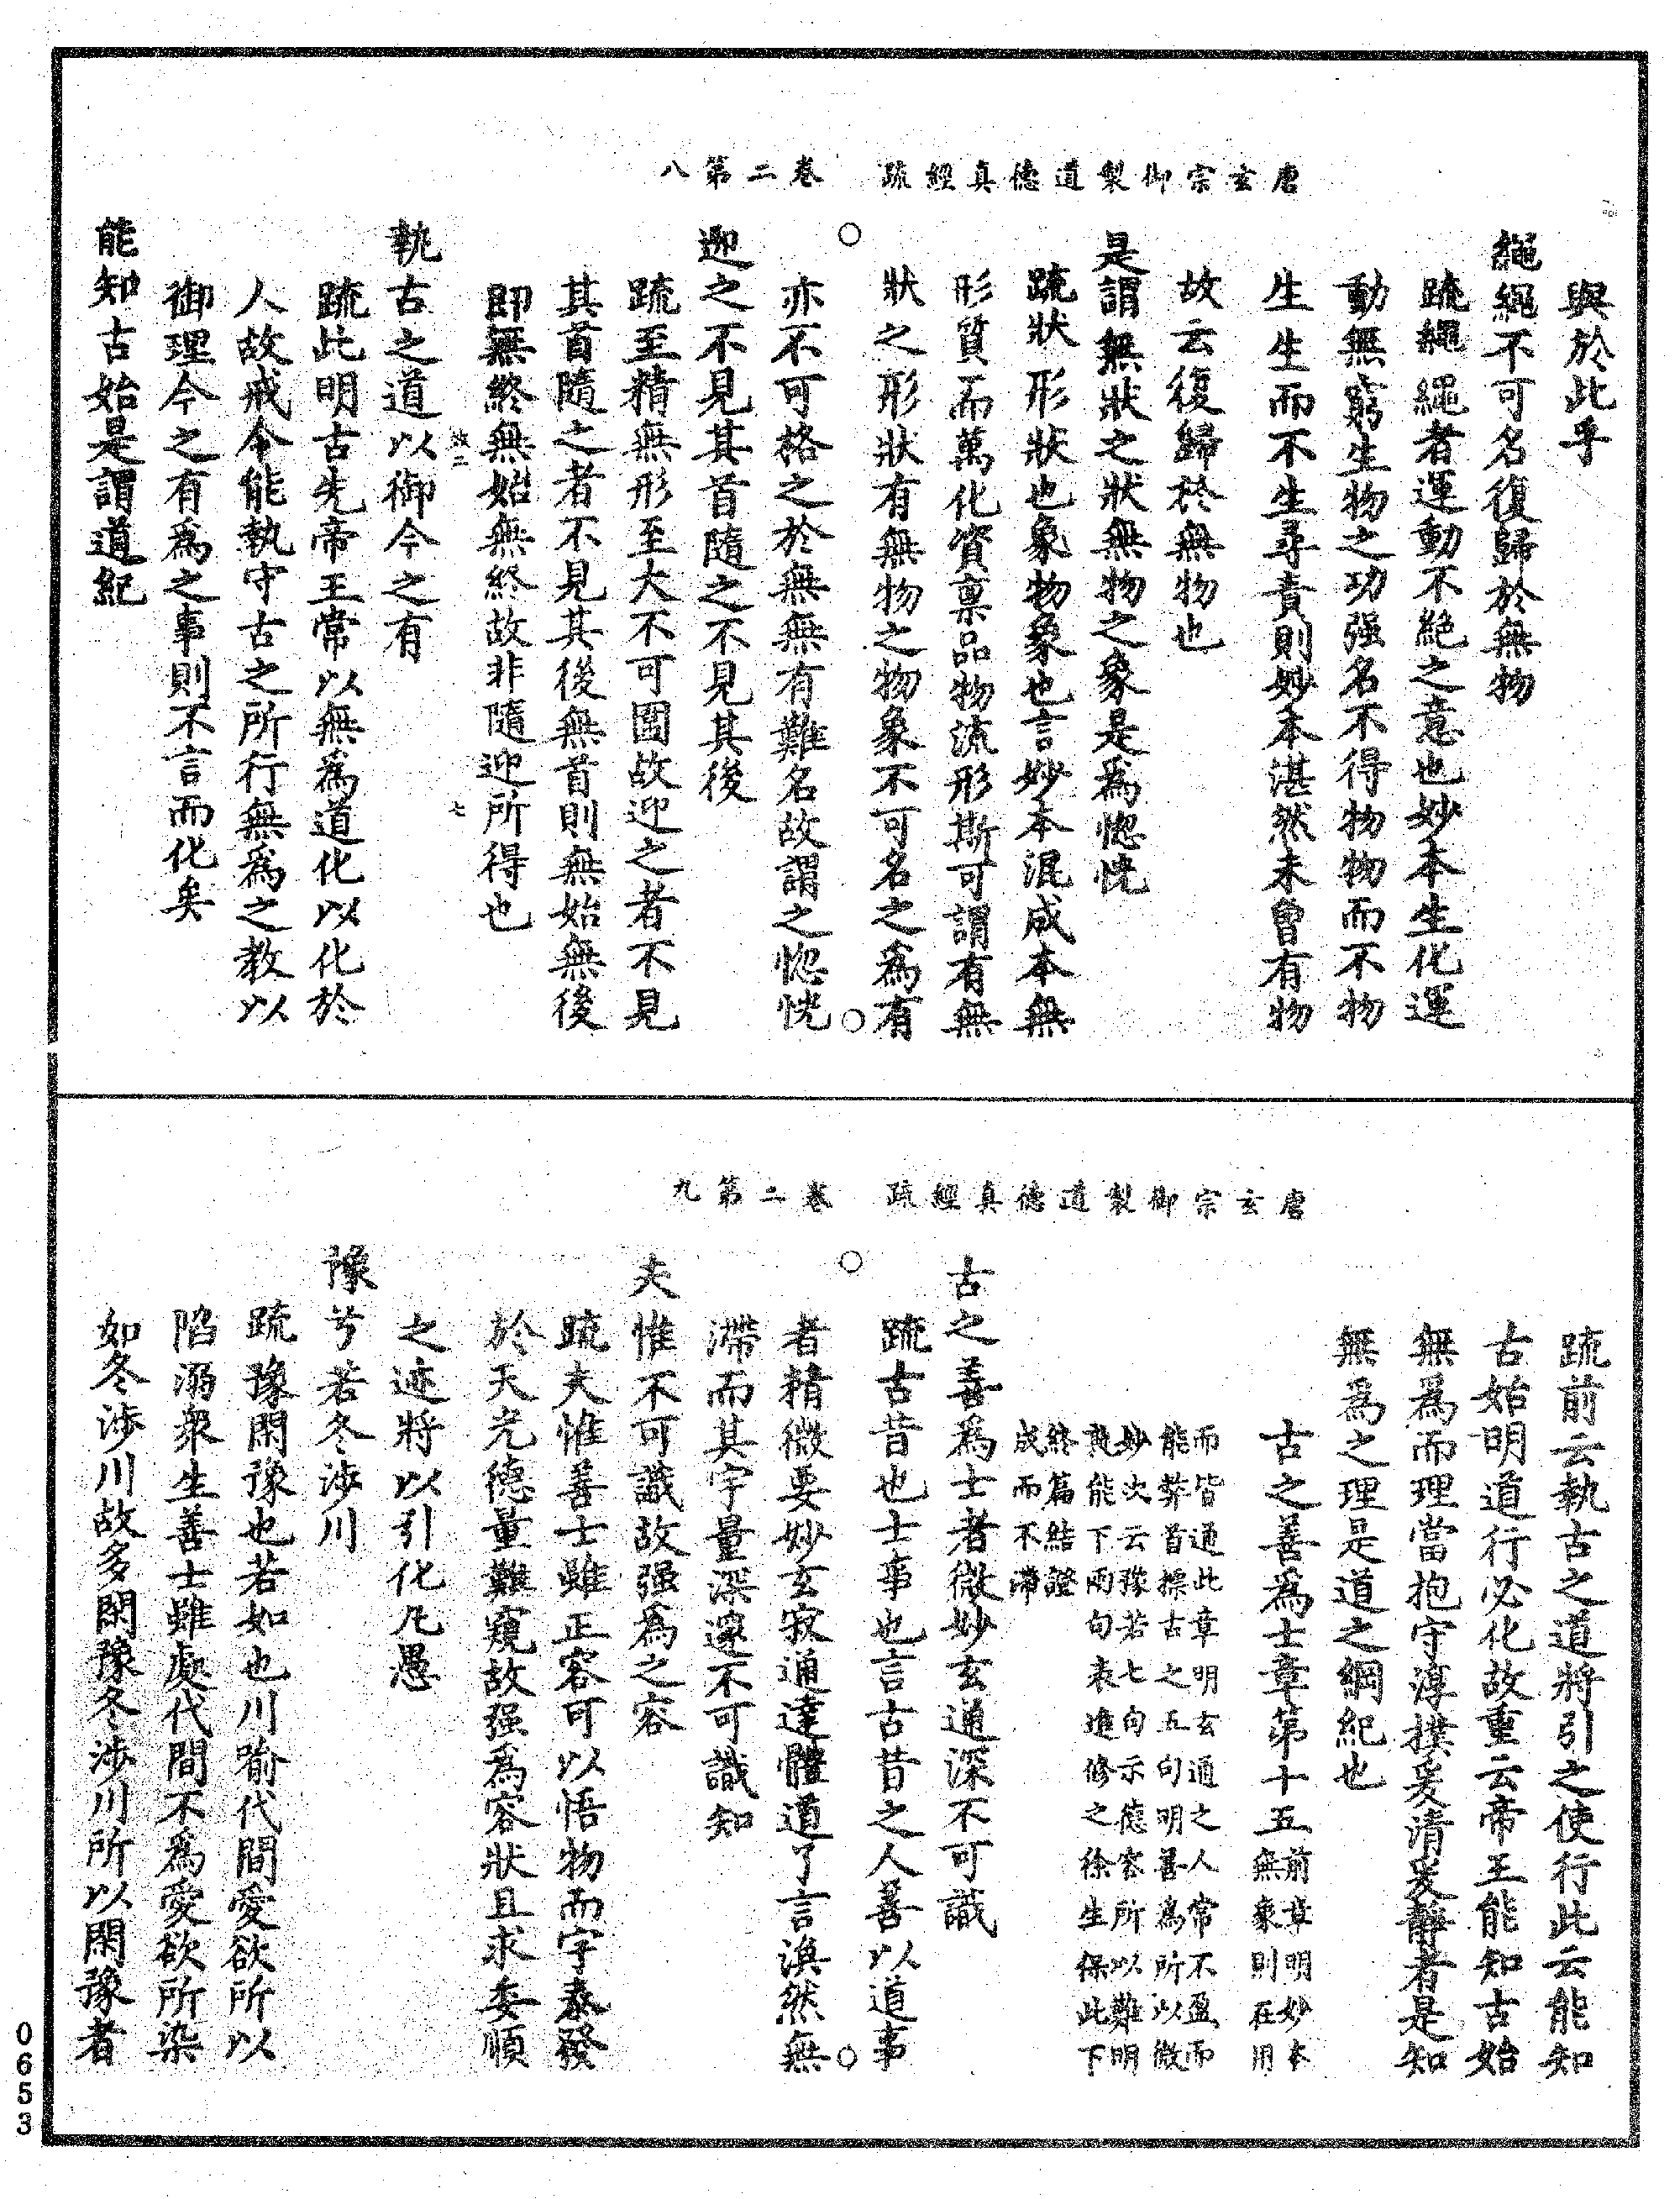 唐玄宗御製道德真經疏　卷二第八
與於此乎
繩繩不可名復歸於無物
疏繩繩者運動不絶之意也妙本生化運
動無窮生物之功强名不得物物而不物
生生而不生尋責則妙本湛然未曾有物
故云復歸於無物也
是謂無狀之狀無物之象是爲惚恍
疏狀形狀也象物象也言妙本混成本無
形質而萬化資禀品物流形斯可謂有無
狀之形狀有無物之物象不可名之爲有
亦不可格之於無無有難名故謂之惚恍
迎之不見其首隨之不見其後
疏至精無形至大不可圍故迎之者不見
其首隨之者不見其後無首則無始無後
即無終無始無終故非隨迎所得也
效二　七
執古之道以御今之有
疏此明古先帝王常以無爲道化以化於
人故戒令能執守古之所行無爲之教以
御理今之有爲之事則不言而化矣
能知古始是謂道紀
唐玄宗御製道德真經疏　卷二第九
疏前云執古之道將引之使行此云能知
古始明道行必化故重云帝王能知古始
無爲而理當抱守淳樸爰清爰靜者是知
無爲之理是道之綱紀也
古之善爲士章第十五
前章明妙本
無象則在用
而皆通此章明玄通之人常不盈而
能弊首摽古之五句明善爲所以微
妙次云豫若七句示德容所以難明
孰能下兩句表進修之徐生保此下
終篇結證
成而不滯
古之善爲士者微妙玄通深不可識
疏古昔也士事也言古昔之人善以道事
者精微要妙玄寂通達體道了言渙然無
滯而其宇量深邃不可識知
夫惟不可識故强爲之容
疏夫惟善士雖正容可以悟物而宇泰發
於天光德量難窺故强爲容狀且求委順
之迹將以引化凡愚
豫兮若冬涉川
疏豫閑豫也若如也川喻代間愛欲所以
陷溺衆生善士雖處代間不爲愛欲所染
如冬涉川故多閑豫冬涉川所以閑豫者
0653